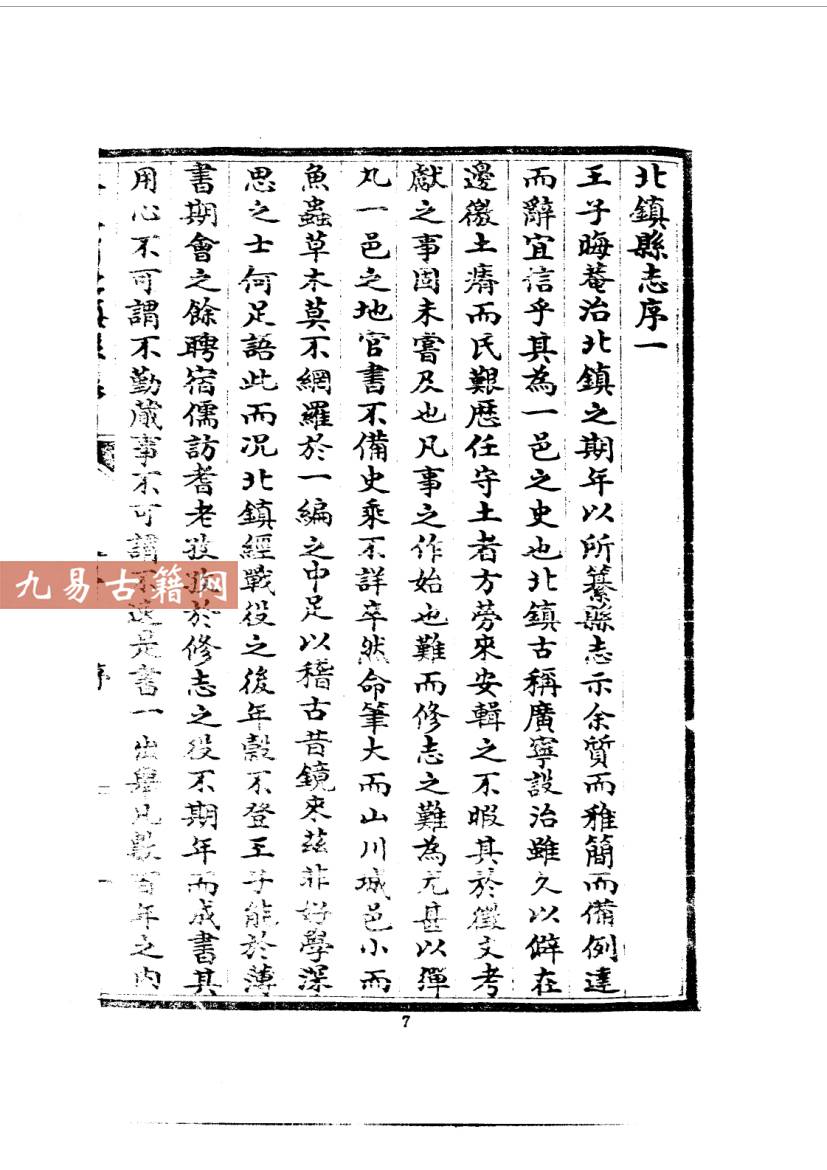 北鎮縣志序一
王子晦菴治北鎮之期年以所纂縣志示余質而雅簡而備例達
而辭宜信乎其為一邑之史也北鎮古稱廣寧設治雖久以僻在
邊徼土瘠而民艱歷任守土者方勞來安輯之不暇其於徵文考
獻之事固未嘗及也凡事之作始也難而修志之難為尤甚以彈
丸一邑之地官書不備史乘不詳卒然命筆大而山川城邑小而
魚蟲草木莫不網羅於一編之中足以稽古昔鏡來茲非好學深
思之士何足語此而况北鎮經戰役之後年穀不登王子能於薄
書期會之餘聘宿儒訪耆老孜孜於修志之役不期年而成書其
用心不可謂不勤蕆事不可謂不速是書一出舉凡數百年之內
序
九易古籍网
7